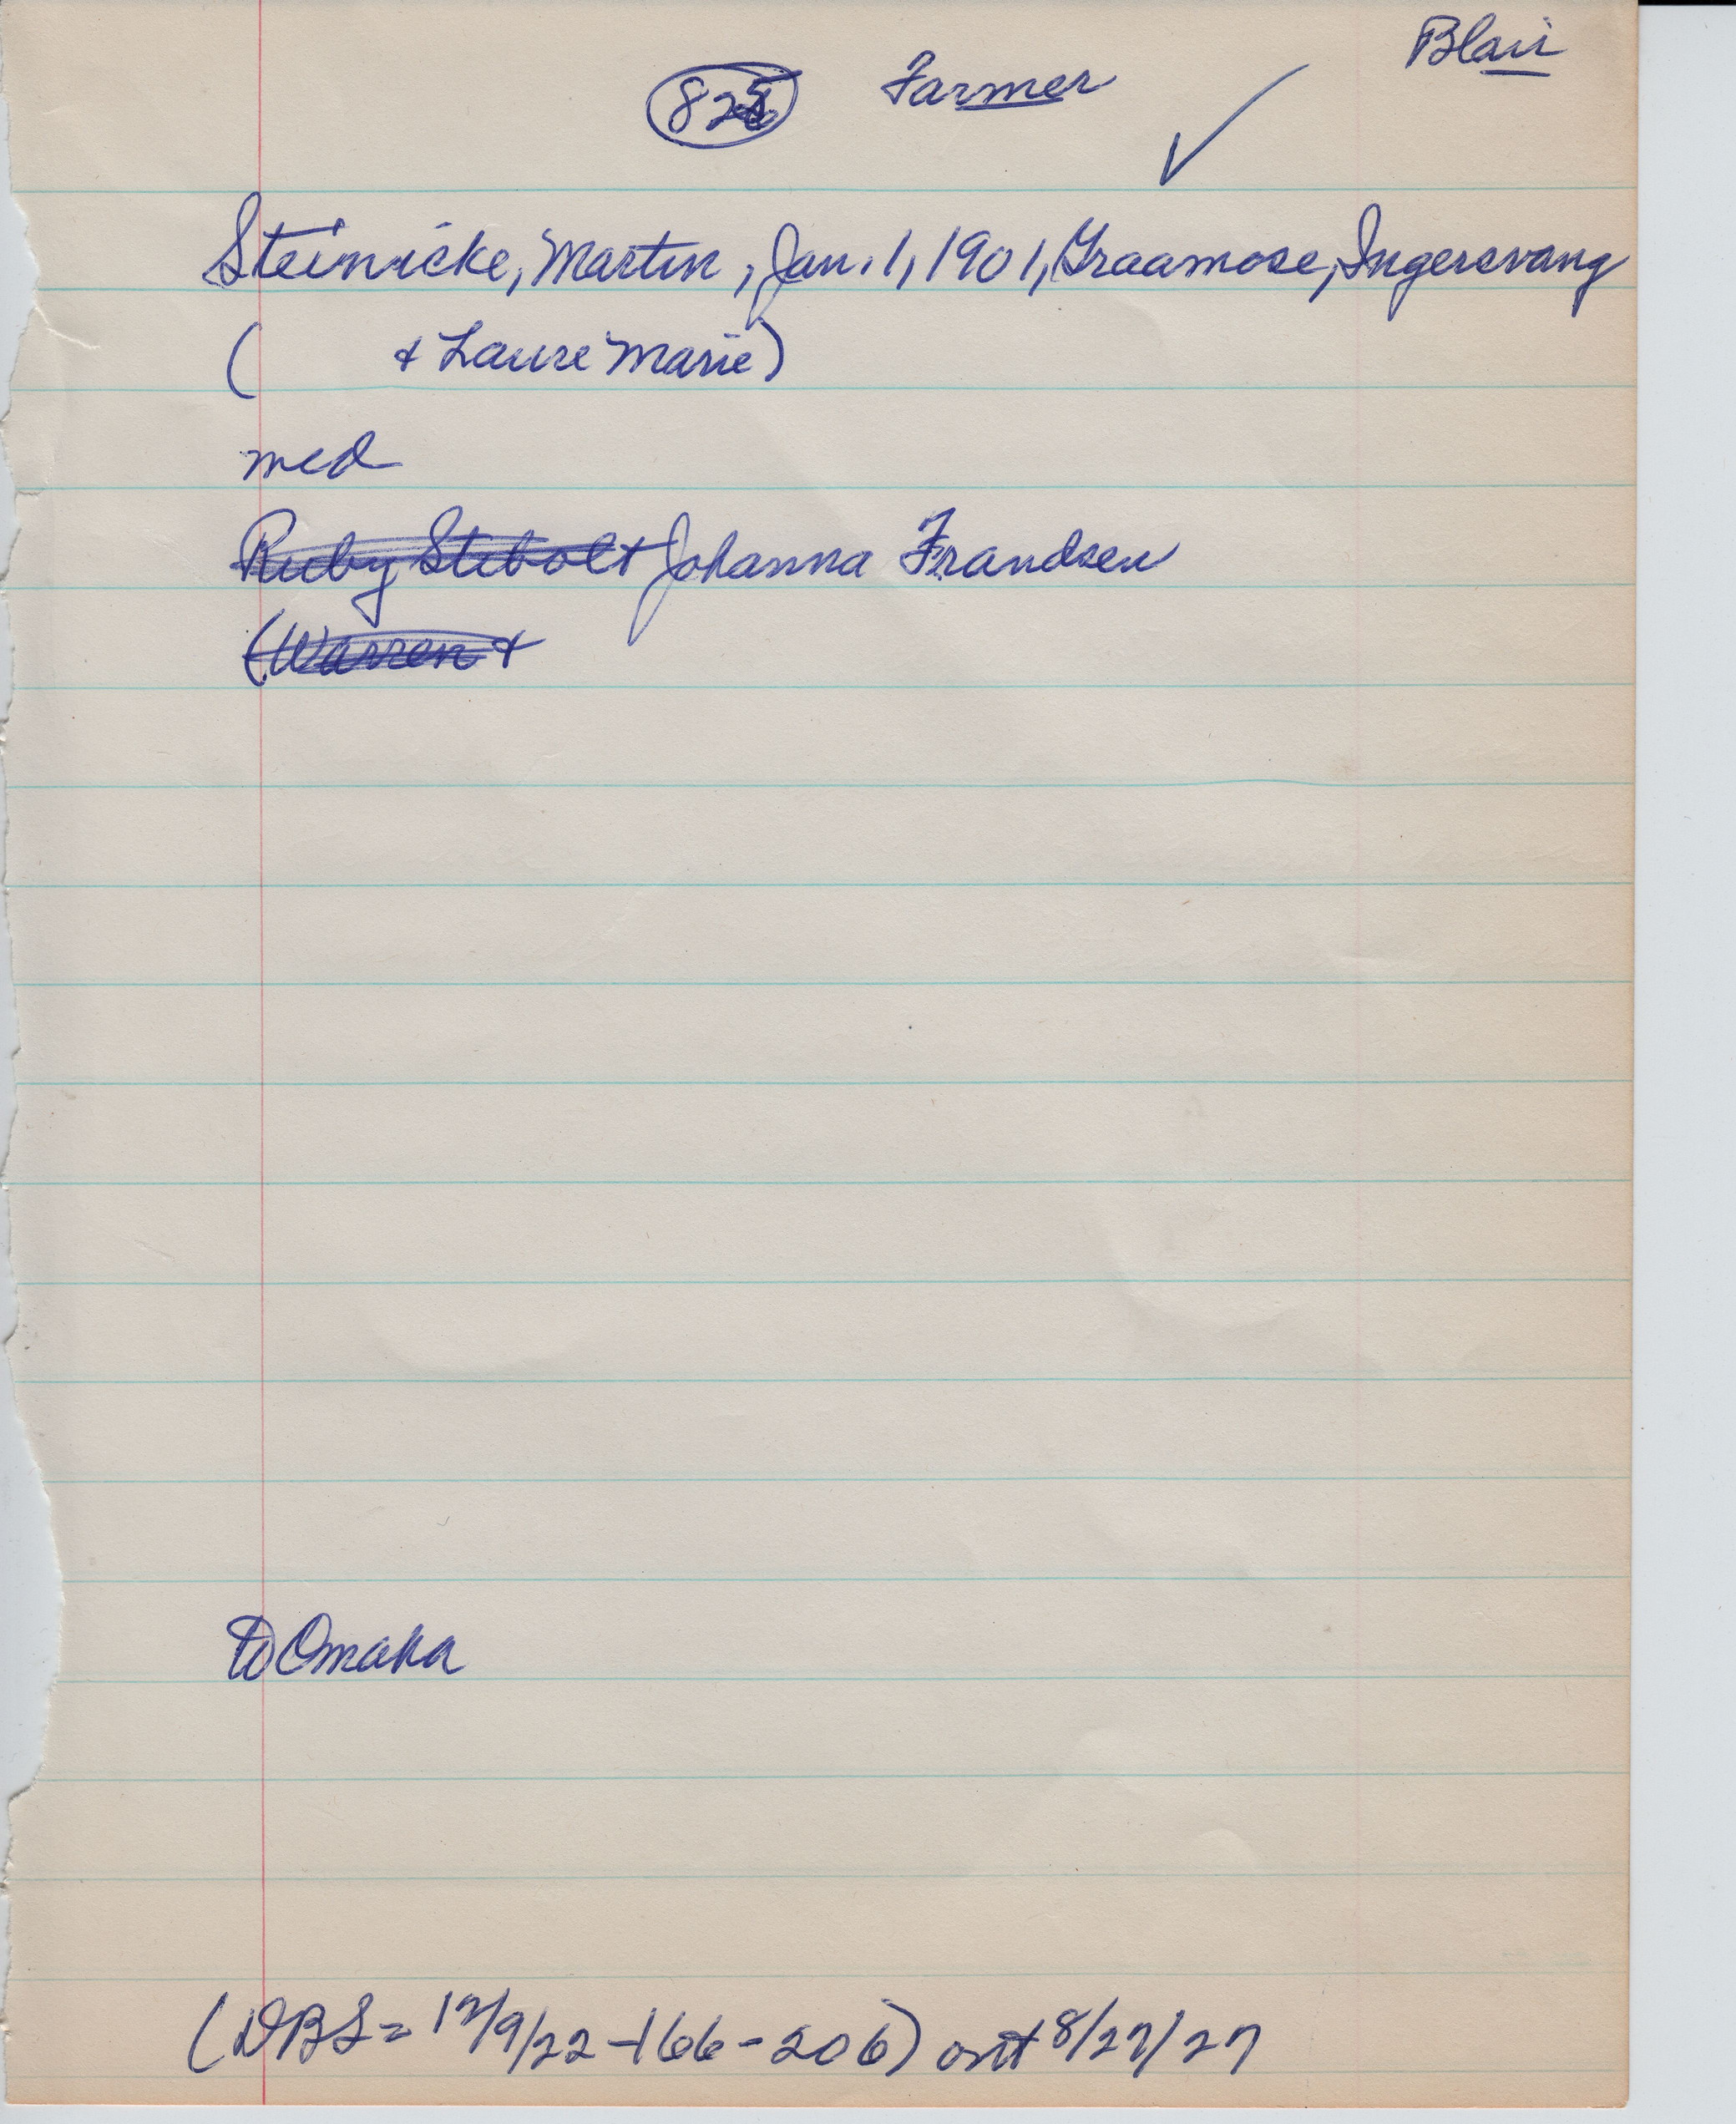 Blair
Farmer ✓
Steinicke, Martin, Jan. 1, 1901, Graamose, Ingersvang
( & Laure Marie)
med
Ruby Stibolt Johanna Frandsen
(Warren &
to Omaha
(DBS= 12/9/22-166-206) out 8/27/27